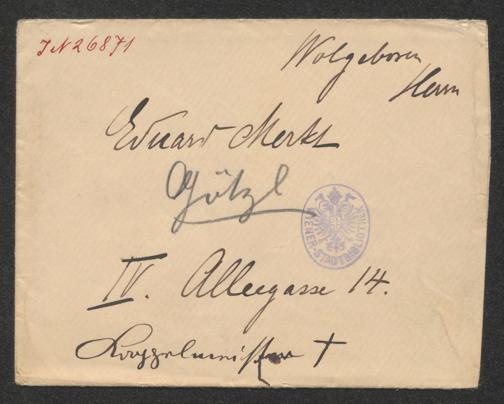 JN 26871
Wolgeboren
Herrn
Eduard Merkt
Götzl
WIENER-STADTBIBLIOTHEK
IV. Alleegasse 14.
Kappelmeister †